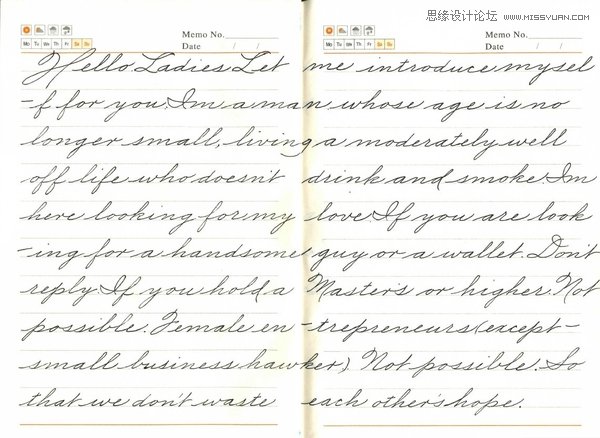 思缘设计论坛 WWW.MISSYUAN.COM
Memo No. Memo No.
Mo Tu We Th Fr Sa Su Date / / Mo Tu We Th Fr Sa Su Date / /
Hello Ladies Let me introduce mysel
-f for you. I'm a man whose age is no
longer small, living a moderately well
off life who doesn't drink and smoke. I'm
here looking for my love. If you are look
-ing for a handsome guy or a wallet. Don't
reply. If you hold a Master's or higher. Not
possible. Female en-trepreneurs (except-
small business hawker) Not possible. So
that we don't waste each other's hope.